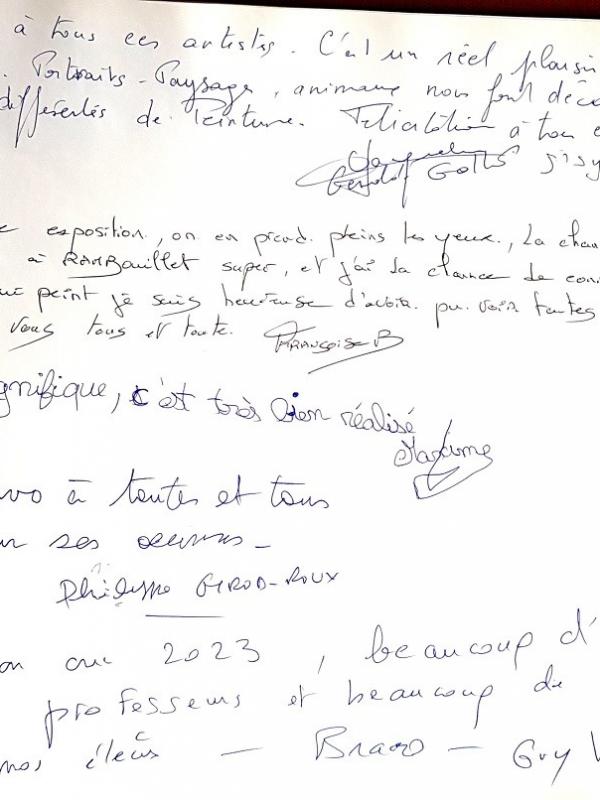 à tous ces artistes. C'est un réel plaisir
Portraits - Paysages, animaux nous font déco
différentes de Peinture. Félicitation à tous e
exposition, on en prend pleins les yeux, La chan
à RAMBouillet super, et j'ai la chance de con
peint je suis heureuse d'avoir pu voir toutes
vous tous et toute. FRANÇOISE B
gnifique, c'est très bien réalisé
Maxime
vo à toutes et tous
ses oeuvres -
Philippe GIROD-ROUX
on cru 2023, beaucoup d'
professeurs et beaucoup de
nos élèves - Bravo - Guy